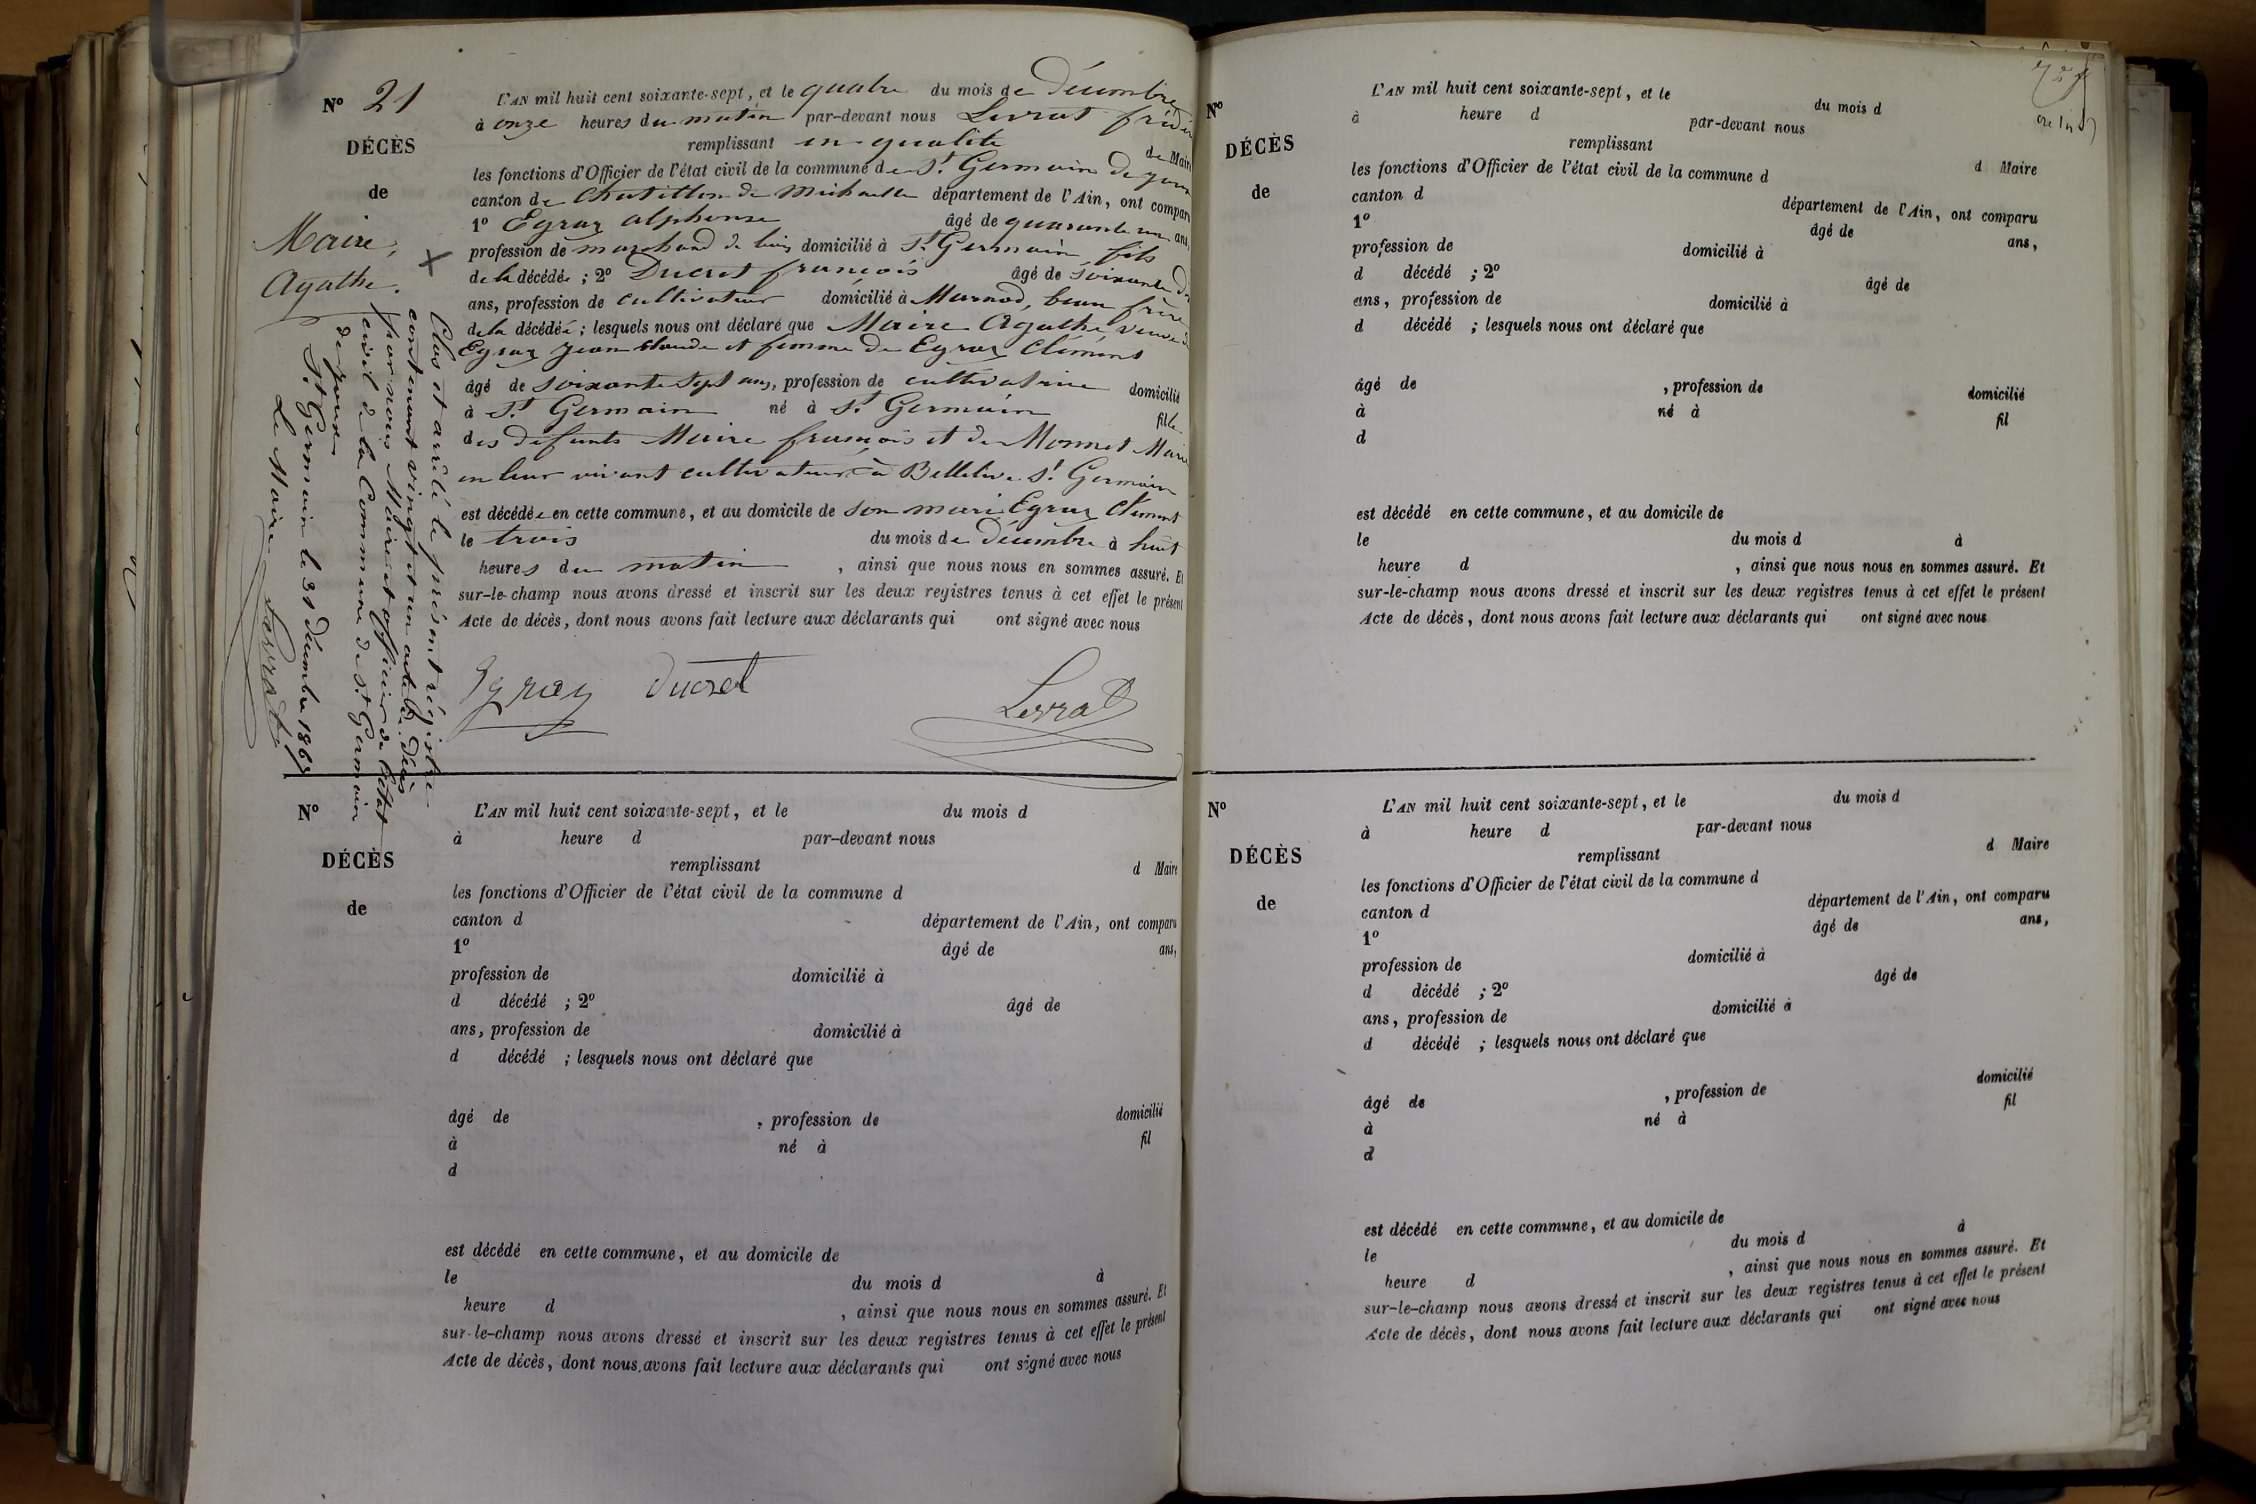 N° 21
DÉCÈS
de
Maire,
Agathe.
L'AN mil huit cent soixante-sept, et le quatre du mois de Décembre
à onze heures du matin par-devant nous Livrat
remplissant en qualité de Maire
les fonctions d'Officier de l'état civil de la commune de St Germain de
canton de Chatillon de Michaille département de l'Ain, ont comparu
1° Egraz alphonse âgé de quarante un ans,
profession de marchand de domicilié à St Germain, fils
de la décédée ; 2° Ducret françois âgé de soixante
ans, profession de cultivateur domicilié à Murnod, beau frère
de la décédée ; lesquels nous ont déclaré que Maire Agathe, veuve
Egraz jean Claude et femme de Egraz Clément
âgé de soixante sept ans, profession de cultivatrice domicilié
à St Germain né à St Germain fille
des défunts Maire françois et de Monnet Marie
en leur vivant cultivateurs à St Germain
est décédée en cette commune, et au domicile de son mari Egraz Clément
le trois du mois de Décembre à huit
heures du matin , ainsi que nous nous en sommes assuré. Et
sur-le-champ nous avons dressé et inscrit sur les deux registres tenus à cet effet le présent
Acte de décès, dont nous avons fait lecture aux déclarants qui ont signé avec nous
Egraz Ducret Livrat
Clos et arrêté le présent régistre
contenant vingt et un acte de décès
par nous Maire et officier de l'état
civil de la Commune de St Germain
de joux
St Germain le 31 décembre 1867
Le Maire
Livrat
N°
DÉCÈS
de
L'AN mil huit cent soixante-sept, et le du mois d
à heure d par-devant nous
remplissant d Maire
les fonctions d'Officier de l'état civil de la commune d
canton d département de l'Ain, ont comparu
1° âgé de ans,
profession de domicilié à
d décédé ; 2° âgé de
ans, profession de domicilié à
d décédé ; lesquels nous ont déclaré que
âgé de , profession de domicilié
à né à fil
d
est décédé en cette commune, et au domicile de
le du mois d à
heure d , ainsi que nous nous en sommes assuré. Et
sur-le-champ nous avons dressé et inscrit sur les deux registres tenus à cet effet le présent
Acte de décès, dont nous avons fait lecture aux déclarants qui ont signé avec nous
N°
DÉCÈS
de
L'AN mil huit cent soixante-sept, et le du mois d
à heure d par-devant nous
remplissant d Maire
les fonctions d'Officier de l'état civil de la commune d
canton d département de l'Ain, ont comparu
1° âgé de ans,
profession de domicilié à
d décédé ; 2° âgé de
ans, profession de domicilié à
d décédé ; lesquels nous ont déclaré que
âgé de , profession de domicilié
à né à fil
d
est décédé en cette commune, et au domicile de
le du mois d à
heure d , ainsi que nous nous en sommes assuré. Et
sur-le-champ nous avons dressé et inscrit sur les deux registres tenus à cet effet le présent
Acte de décès, dont nous avons fait lecture aux déclarants qui ont signé avec nous
N°
DÉCÈS
de
L'AN mil huit cent soixante-sept, et le du mois d
à heure d par-devant nous
remplissant d Maire
les fonctions d'Officier de l'état civil de la commune d
canton d département de l'Ain, ont comparu
1° âgé de ans,
profession de domicilié à
d décédé ; 2° âgé de
ans, profession de domicilié à
d décédé ; lesquels nous ont déclaré que
âgé de , profession de domicilié
à né à fil
d
est décédé en cette commune, et au domicile de
le du mois d à
heure d , ainsi que nous nous en sommes assuré. Et
sur-le-champ nous avons dressé et inscrit sur les deux registres tenus à cet effet le présent
Acte de décès, dont nous avons fait lecture aux déclarants qui ont signé avec nous